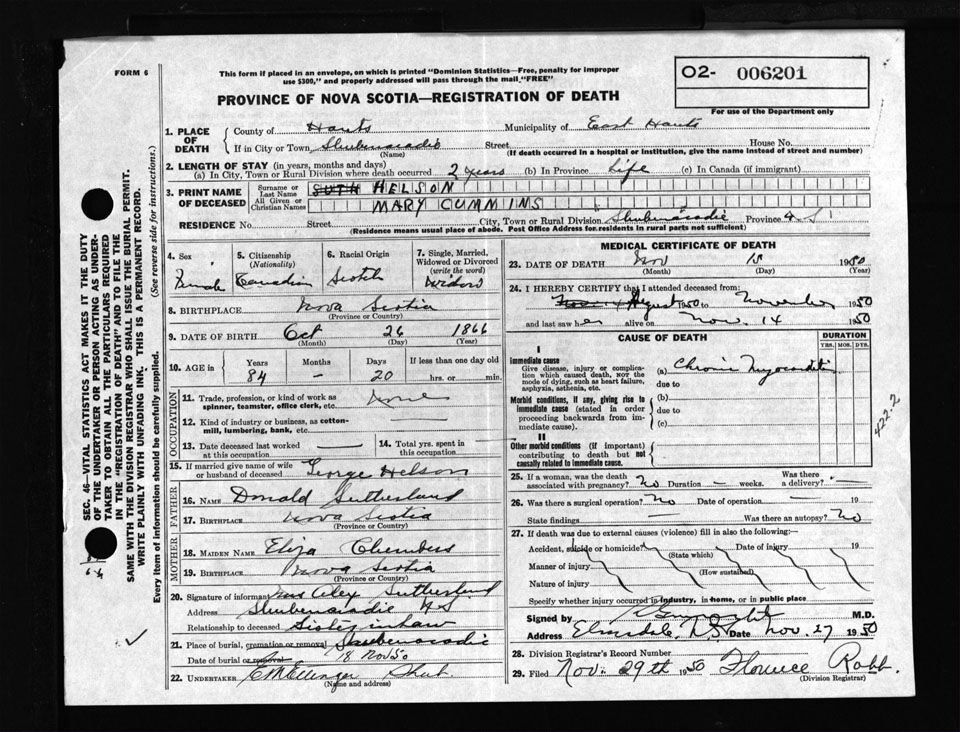 FORM 6
This form if placed in an envelope, on which is printed "Dominion Statistics—Free, penalty for improper
use $300," and properly addressed will pass through the mail "FREE"
O2- 006201
For use of the Department only
PROVINCE OF NOVA SCOTIA—REGISTRATION OF DEATH
1. PLACE OF DEATH
County of Hants Municipality of East Hants
If in City or Town Shubenacadie Street House No.
(Name) (If death occurred in a hospital or institution, give the name instead of street and number)
2. LENGTH OF STAY (in years, months and days)
(a) In City, Town or Rural Division where death occurred 2 years (b) In Province Life (c) In Canada (if immigrant)
3. PRINT NAME OF DECEASED
Surname or Last Name SUTH HELSON
All Given or Christian Names MARY CUMMINS
RESIDENCE No. Street City, Town or Rural Division Shubenacadie Province N.S.
(Residence means usual place of abode. Post Office Address for residents in rural parts not sufficient)
4. Sex Female
5. Citizenship (Nationality) Canadian
6. Racial Origin Scotch
7. Single, Married, Widowed or Divorced (write the word) Widow
8. BIRTHPLACE Nova Scotia
(Province or Country)
9. DATE OF BIRTH Oct 26 1866
(Month) (Day) (Year)
10. AGE in Years Months Days If less than one day old
84 – 20 hrs. or min.
OCCUPATION
11. Trade, profession, or kind of work as spinner, teamster, office clerk, etc. none
12. Kind of industry or business, as cotton-mill, lumbering, bank, etc.
13. Date deceased last worked at this occupation
14. Total yrs. spent in this occupation
15. If married give name of wife or husband of deceased George Helson
FATHER
16. NAME Donald Sutherland
17. BIRTHPLACE Nova Scotia
(Province or Country)
MOTHER
18. MAIDEN NAME Eliza Chembers
19. BIRTHPLACE Nova Scotia
(Province or Country)
20. Signature of informant Mrs Alex Sutherland
Address Shubenacadie N S
Relationship to deceased Sister in law
21. Place of burial, cremation or removal Shubenacadie
Date of burial or removal 18 Nov 50
22. UNDERTAKER Shub.
(Name and address)
MEDICAL CERTIFICATE OF DEATH
23. DATE OF DEATH Nov 15 1950
(Month) (Day) (Year)
24. I HEREBY CERTIFY that I attended deceased from:
August 1950 to November 1950
and last saw her alive on Nov. 14 1950
CAUSE OF DEATH
DURATION
YRS. MOS. DYS.
I
Immediate cause
Give disease, injury or complication which caused death, NOT the mode of dying, such as heart failure, asphyxia, asthenia, etc.
(a) Chronic Myocarditis
due to
Morbid conditions, if any, giving rise to immediate cause (stated in order proceeding backwards from immediate cause).
(b)
due to
(c)
II
Other morbid conditions (if important) contributing to death but not causally related to immediate cause.
422-2
25. If a woman, was the death associated with pregnancy? No Duration – weeks. Was there a delivery? –
26. Was there a surgical operation? No Date of operation – 19
State findings – Was there an autopsy? No
27. If death was due to external causes (violence) fill in also the following:—
Accident, suicide or homicide? Date of injury 19
(State which)
Manner of injury
(How sustained)
Nature of injury
Specify whether injury occurred in industry, in home, or in public place
Signed by M.D.
Address Elmsdale, N.S. Date Nov. 27 1950
28. Division Registrar's Record No.
29. Filed Nov. 29th 1950 Florence Robb.
(Division Registrar)
SEC. 46—VITAL STATISTICS ACT MAKES IT THE DUTY
OF THE UNDERTAKER OR PERSON ACTING AS UNDER-
TAKER TO OBTAIN ALL THE PARTICULARS REQUIRED
IN THE "REGISTRATION OF DEATH" AND TO FILE THE
SAME WITH THE DIVISION REGISTRAR WHO SHALL ISSUE THE BURIAL PERMIT.
WRITE PLAINLY WITH UNFADING INK. THIS IS A PERMANENT RECORD.
Every item of information should be carefully supplied. (See reverse side for instructions.)